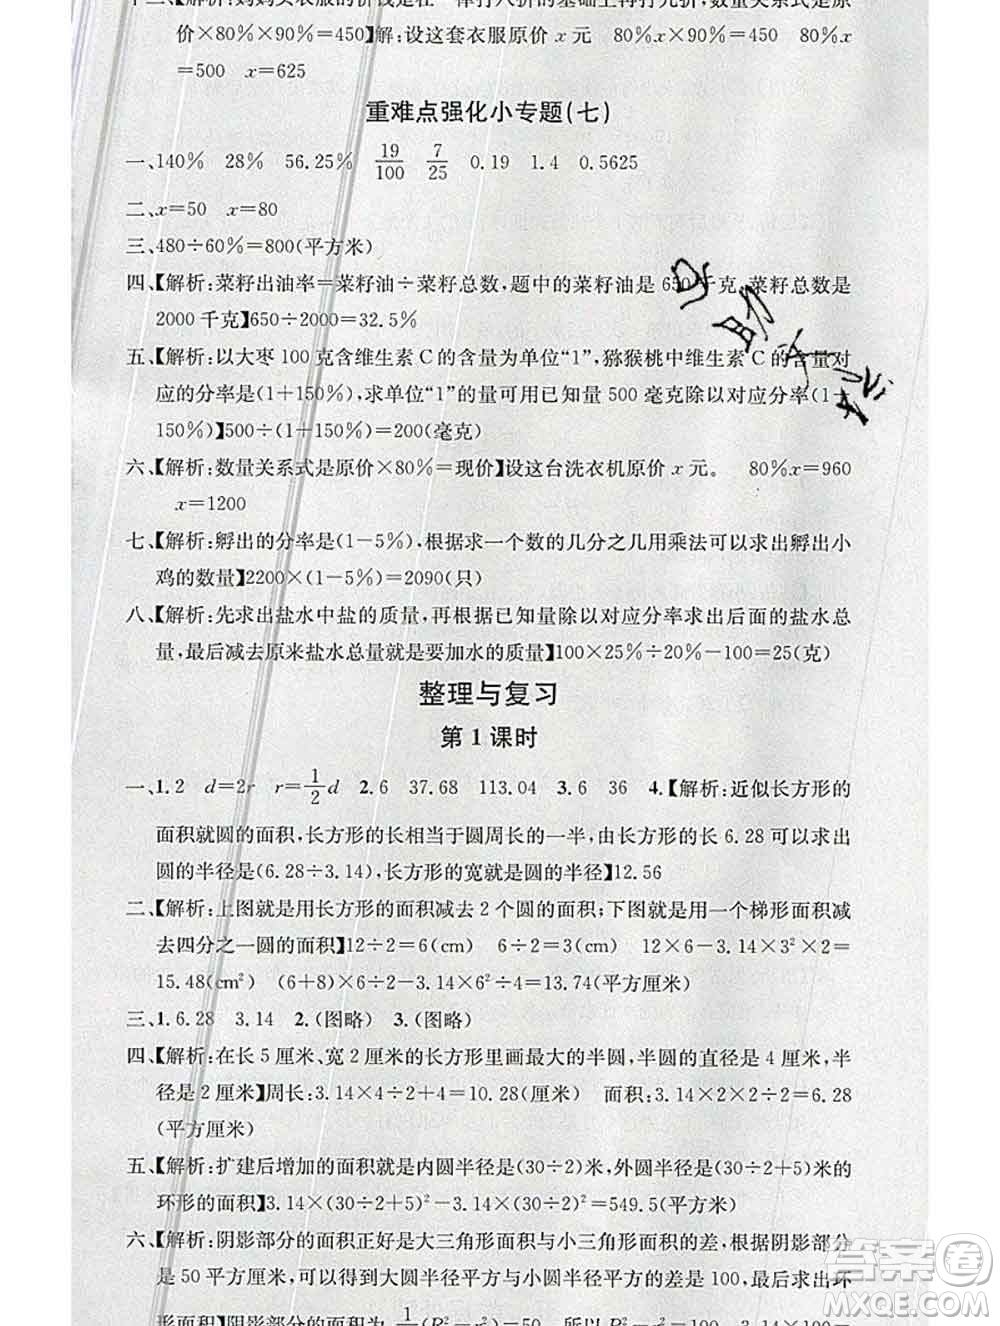 十二、【解析:妈妈买衣服的价钱是在一件打八折的基础上再打九折,数量关系式是原
价×80%×90%=450】解:设这套衣服原价 x 元　80%x×90%=450　80%x
=500　x=625
重难点强化小专题(七)
一、140%　28%　56.25%　19/100　7/25　0.19　1.4　0.5625
二、x=50　x=80
三、480÷60%=800(平方米)
四、【解析:菜籽出油率=菜籽油÷菜籽总数,题中的菜籽油是 650 千克,菜籽总数是
2000 千克】650÷2000=32.5%
五、【解析:以大枣 100 克含维生素 C 的含量为单位“1”,猕猴桃中维生素 C 的含量对
应的分率是(1+150%),求单位“1”的量可以用已知量 500 毫克除以对应分率(1+
150%)】500÷(1+150%)=200(毫克)
六、【解析:数量关系式是原价×80%=现价】设这台洗衣机原价 x 元。　80%x=960
x=1200
七、【解析:孵出的分率是(1-5%),根据求一个数的几分之几用乘法可以求出孵出小
鸡的数量】2200×(1-5%)=2090(只)
八、【解析:先求出盐水中盐的质量,再根据已知量除以对应分率求出后面的盐水总
量,最后减去原来盐水总量就是要加水的质量】100×25%÷20%-100=25(克)
整理与复习
第 1 课时
一、1.2　d=2r　r=1/2 d　2.6　37.68　113.04　3.6　36　4.【解析:近似长方形的
面积就圆的面积,长方形的长相当于圆周长的一半,由长方形的长 6.28 可以求出
圆的半径是(6.28÷3.14),长方形的宽就是圆的半径】12.56
二、【解析:上图就是用长方形的面积减去 2 个圆的面积;下图就是用一个梯形面积减
去四分之一圆的面积】12÷2=6(cm)　6÷2=3(cm)　12×6-3.14×3²×2=
15.48(cm²)　(6+8)×6÷2-3.14×6²÷4=13.74(平方厘米)
三、1.6.28　3.14　2.(图略)　3.(图略)
四、【解析:在长 5 厘米、宽 2 厘米的长方形里画最大的半圆,半圆的直径是 4 厘米,半
径是 2 厘米】周长:3.14×4÷2+4=10.28(厘米)　面积:3.14×2×2÷2=6.28
(平方厘米)
五、【解析:扩建后增加的面积就是内圆半径是(30÷2)米,外圆半径是(30÷2+5)米的
环形的面积】3.14×(30÷2+5)²-3.14×(30÷2)²=549.5(平方米)
六、【解析:阴影部分的面积正好是大三角形面积与小三角形面积的差,根据阴影部分
是 50 平方厘米,可以得到大圆半径平方与小圆半径平方的差是 100,最后求出环
形面积】阴影部分的面积为 1/2(R²-r²)=50　R²-r²=100
答案圈
MXQE.COM